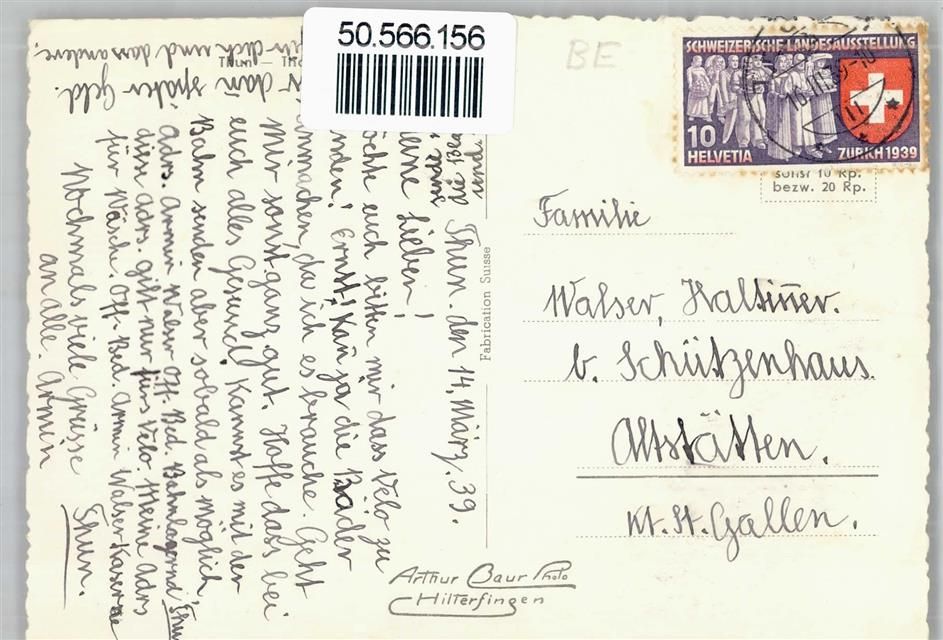 50.566.156
BE
SCHWEIZERISCHE LANDESAUSSTELLUNG
10
HELVETIA
ZÜRICH 1939
sonst 10 Rp.
bezw. 20 Rp.
Familie
Walser, Haltiner.
b. Schützenhaus.
Altstätten.
Kt. St. Gallen.
Fabrication Suisse
Arthur Baur Photo
Hilterfingen
Thun. den 14. März. 39.
Meine Lieben!
Möchte euch bitten mir das Velo zu
senden! Ernst! Kañ ja die Räder
da ich es brauche. Geht
Mir sonst ganz gut. Hoffe dass bei
euch alles Gesund! Kannst es mit der
Bahn senden aber sobald als möglich.
Adrs. Armin Walser Off. Bed. Bahnlagernd Thun
diese Adrs. gilt nur fürs Velo. Meine Adrs
für Wäsche. Off. Bed. Armin Walser Kaserne
Thun.
Nochmals viele Grüsse
an alle. Armin
dañ später Geld.
dich und das andere.